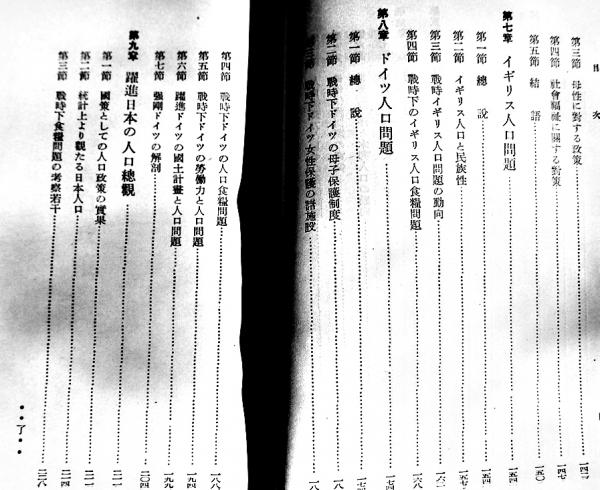 目次
第三節 母性に對する政策 一四二
第四節 社會福祉に關する對策 一四七
第五節 結語 一五〇
第七章 イギリス人口問題 一五四
第一節 總說 一五四
第二節 イギリス人口と民族性 一五七
第三節 戰時イギリス人口問題の動向 一六二
第四節 戰時下のイギリス人口食糧問題 一六八
第八章 ドイツ人口問題 一七四
第一節 總說 一七四
第二節 戰時下ドイツの母子保護制度
第三節 戰時下ドイツ女性保護の諸施設
第四節 戰時下ドイツの人口食糧問題 一八八
第五節 戰時下ドイツの勞働力と人口問題 一九四
第六節 躍進ドイツの國土計畫と人口問題 一九九
第七節 强剛ドイツの解剖 二〇四
第九章 躍進日本の人口總觀 二一一
第一節 國策としての人口政策の實果 二一一
第二節 統計上より觀たる日本人口 二一四
第三節 戰時下食糧問題の考察若干 二二八
・・了・・